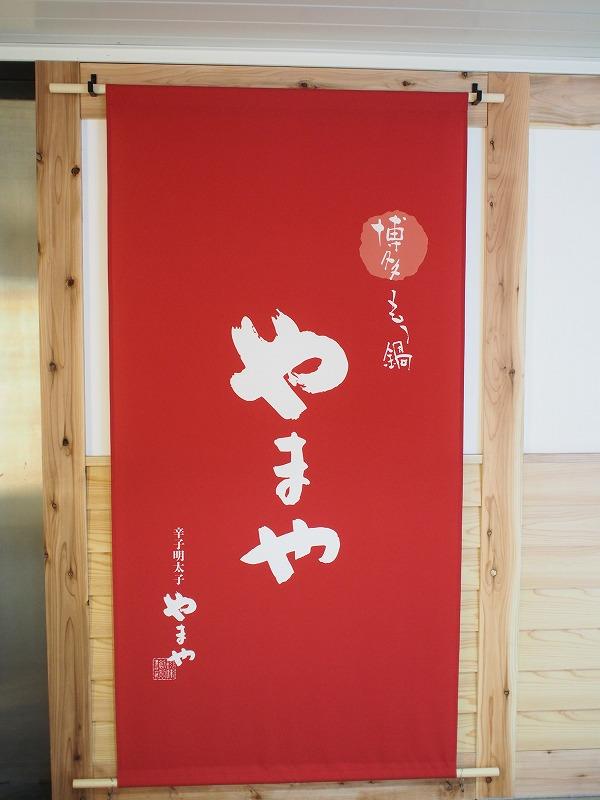 博多もつ鍋
やまや
辛子明太子
やまや